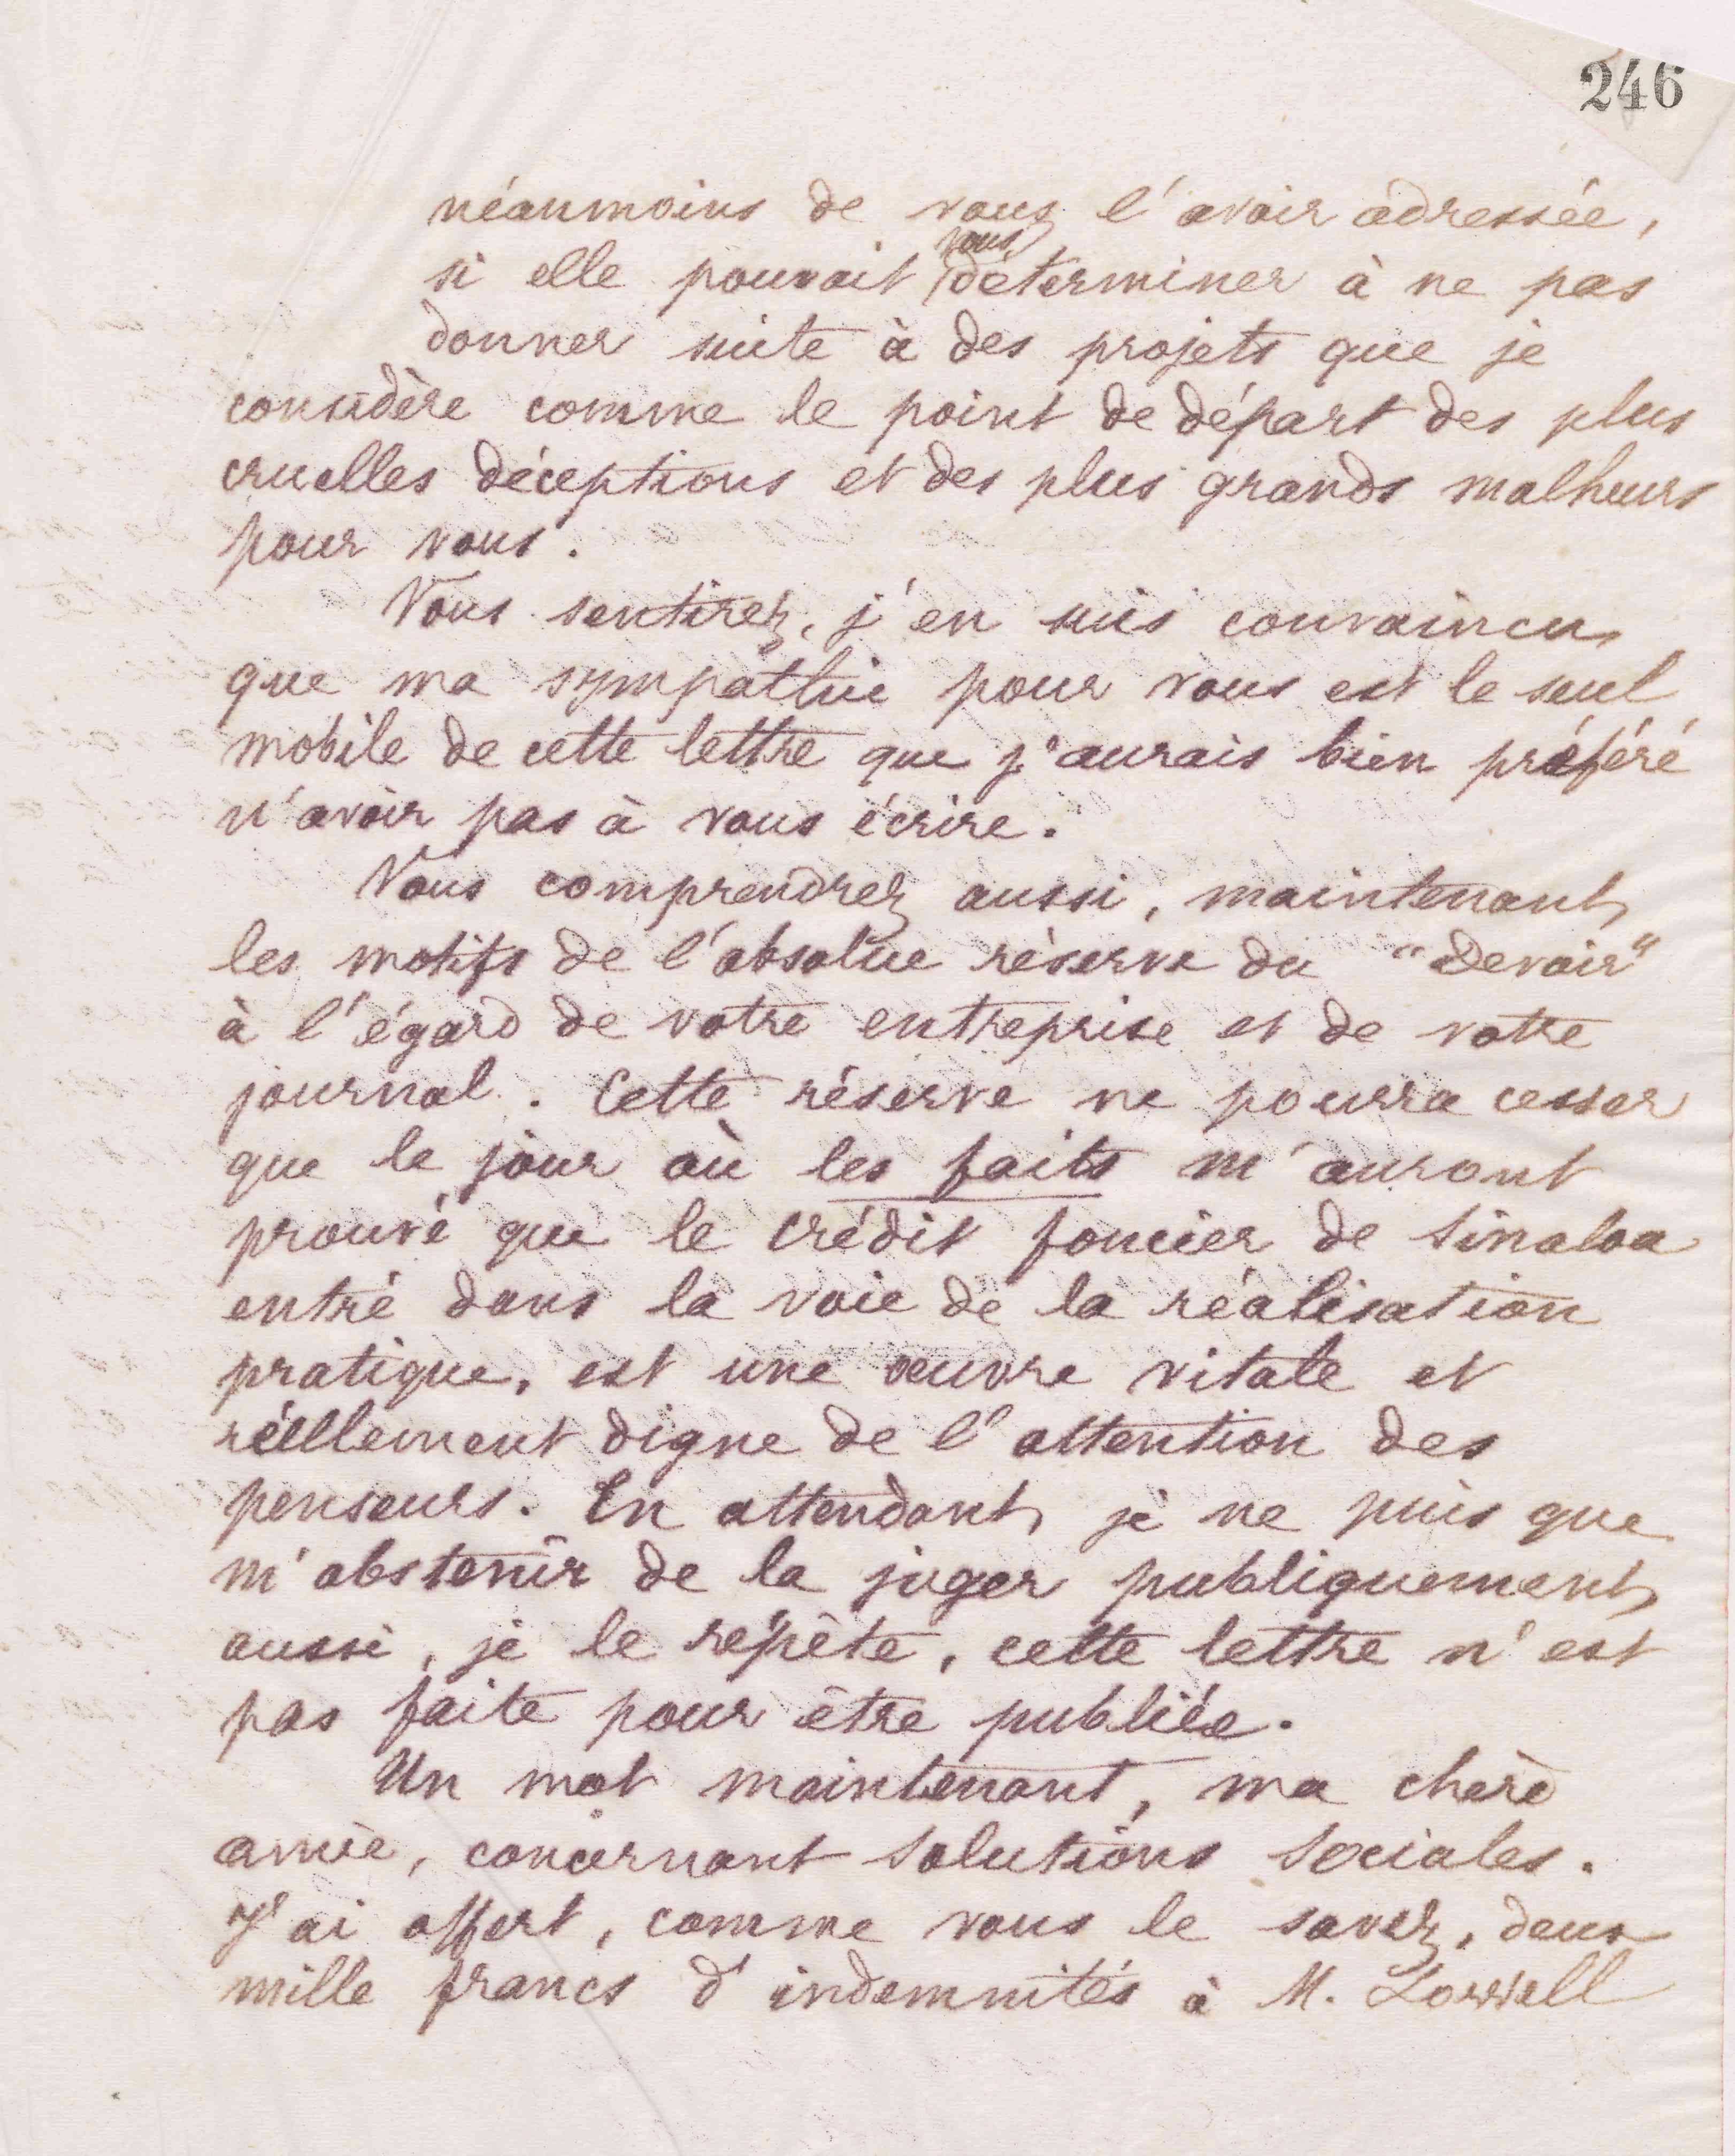 246
néanmoins de vous l'avoir adressée,
si elle pouvait vous déterminer à ne pas
donner suite à des projets que je
considère comme le point de départ des plus
cruelles déceptions et des plus grands malheurs
pour vous.
Vous sentirez, j'en suis convaincu,
que ma sympathie pour vous est le seul
mobile de cette lettre que j'aurais bien préféré
n'avoir pas à vous écrire.
Vous comprendrez aussi, maintenant,
les motifs de l'absolue réserve du "Devoir"
à l'égard de votre entreprise et de votre
journal. Cette réserve ne pourra cesser
que le jour où les faits m'auront
prouvé que le Crédit foncier de Sinaloa
entré dans la voie de la réalisation
pratique, est une œuvre vitale et
réellement digne de l'attention des
penseurs. En attendant, je ne puis que
m'abstenir de la juger publiquement,
aussi, je le répète, cette lettre n'est
pas faite pour être publiée.
Un mot maintenant, ma chère
amie, concernant Solutions Sociales.
J'ai offert, comme vous le savez, deux
mille francs d'indemnités à M.